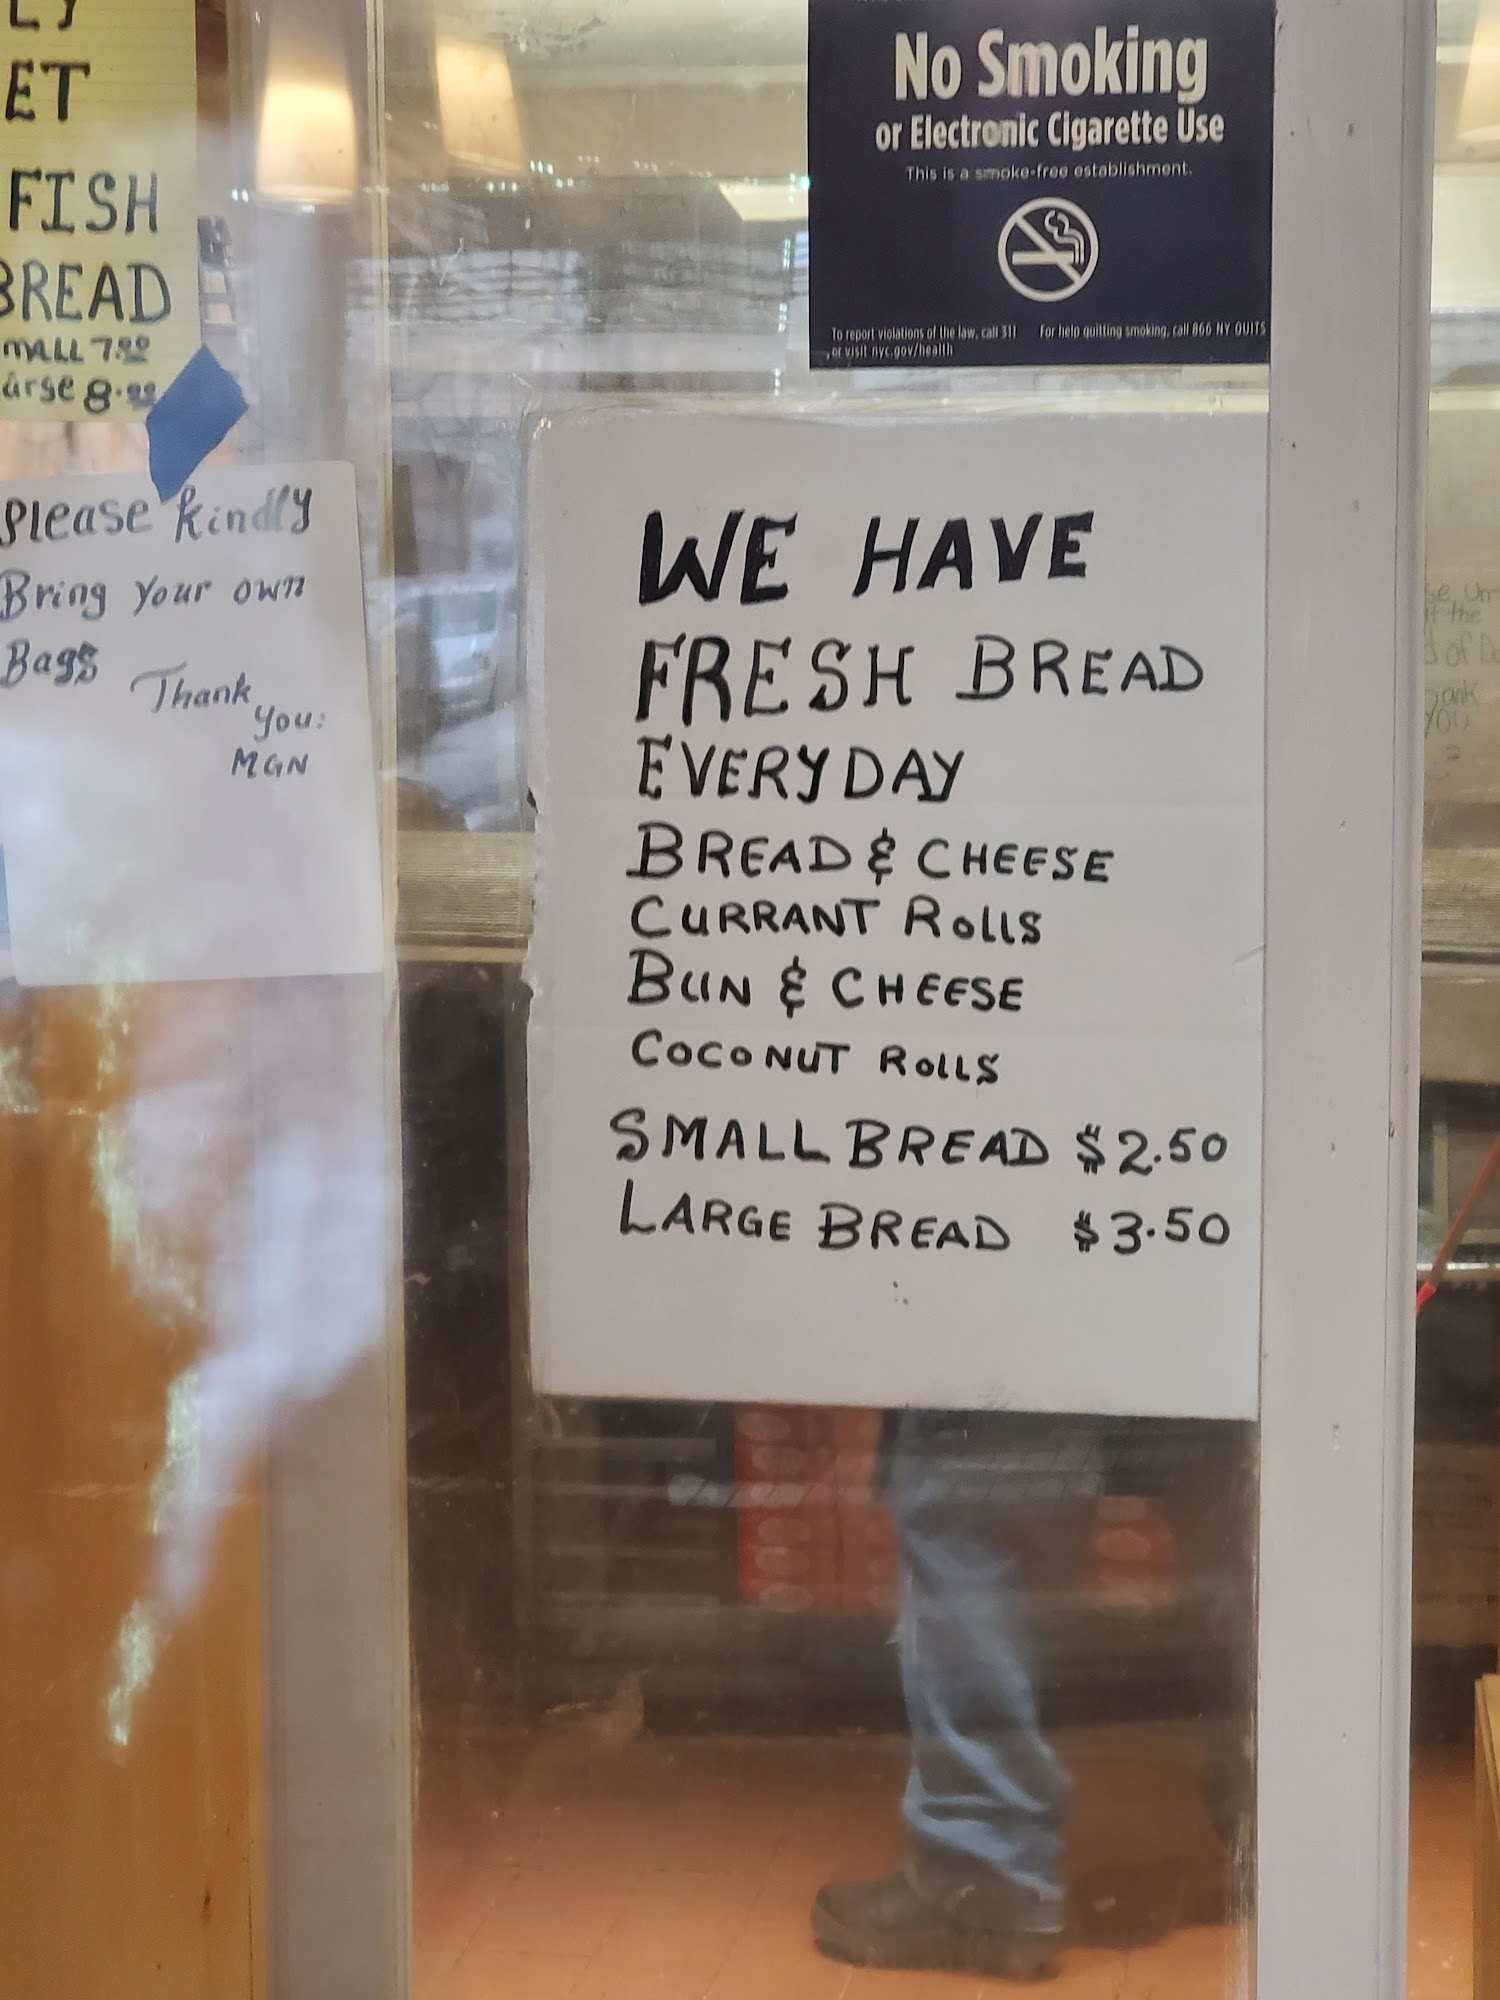 ET
FISH
BREAD
MALL 7.00
arge 8.00
Please kindly
Bring your own
Bags
Thank
you:
MGN
No Smoking
or Electronic Cigarette Use
This is a smoke-free establishment.
To report violations of the law, call 311
or visit nyc.gov/health
For help quitting smoking, call 866 NY QUITS
WE HAVE
FRESH BREAD
EVERYDAY
BREAD & CHEESE
CURRANT ROLLS
BUN & CHEESE
COCONUT ROLLS
SMALL BREAD $2.50
LARGE BREAD $3.50